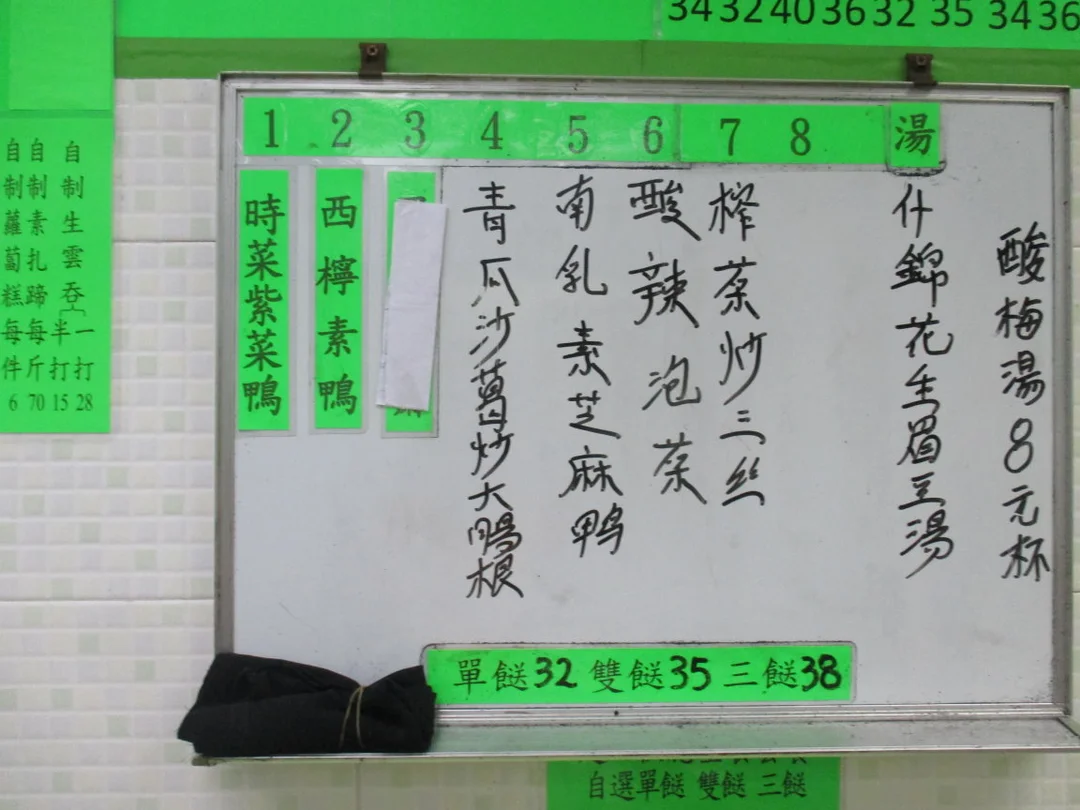 34 32 40 36 32 35 34 36
自制蘿蔔糕每件6
自制素扎蹄每斤70
自制生雲吞
半打15
一打28
1 2 3 4 5 6 7 8 湯
時菜紫菜鴨
西檸素鴨
青瓜沙葛炒大腸根
南乳素芝麻鸭
酸辣泡菜
榨菜炒三丝
什錦花生眉豆湯
酸梅湯8元杯
單餸32 雙餸35 三餸38
自選單餸 雙餸 三餸